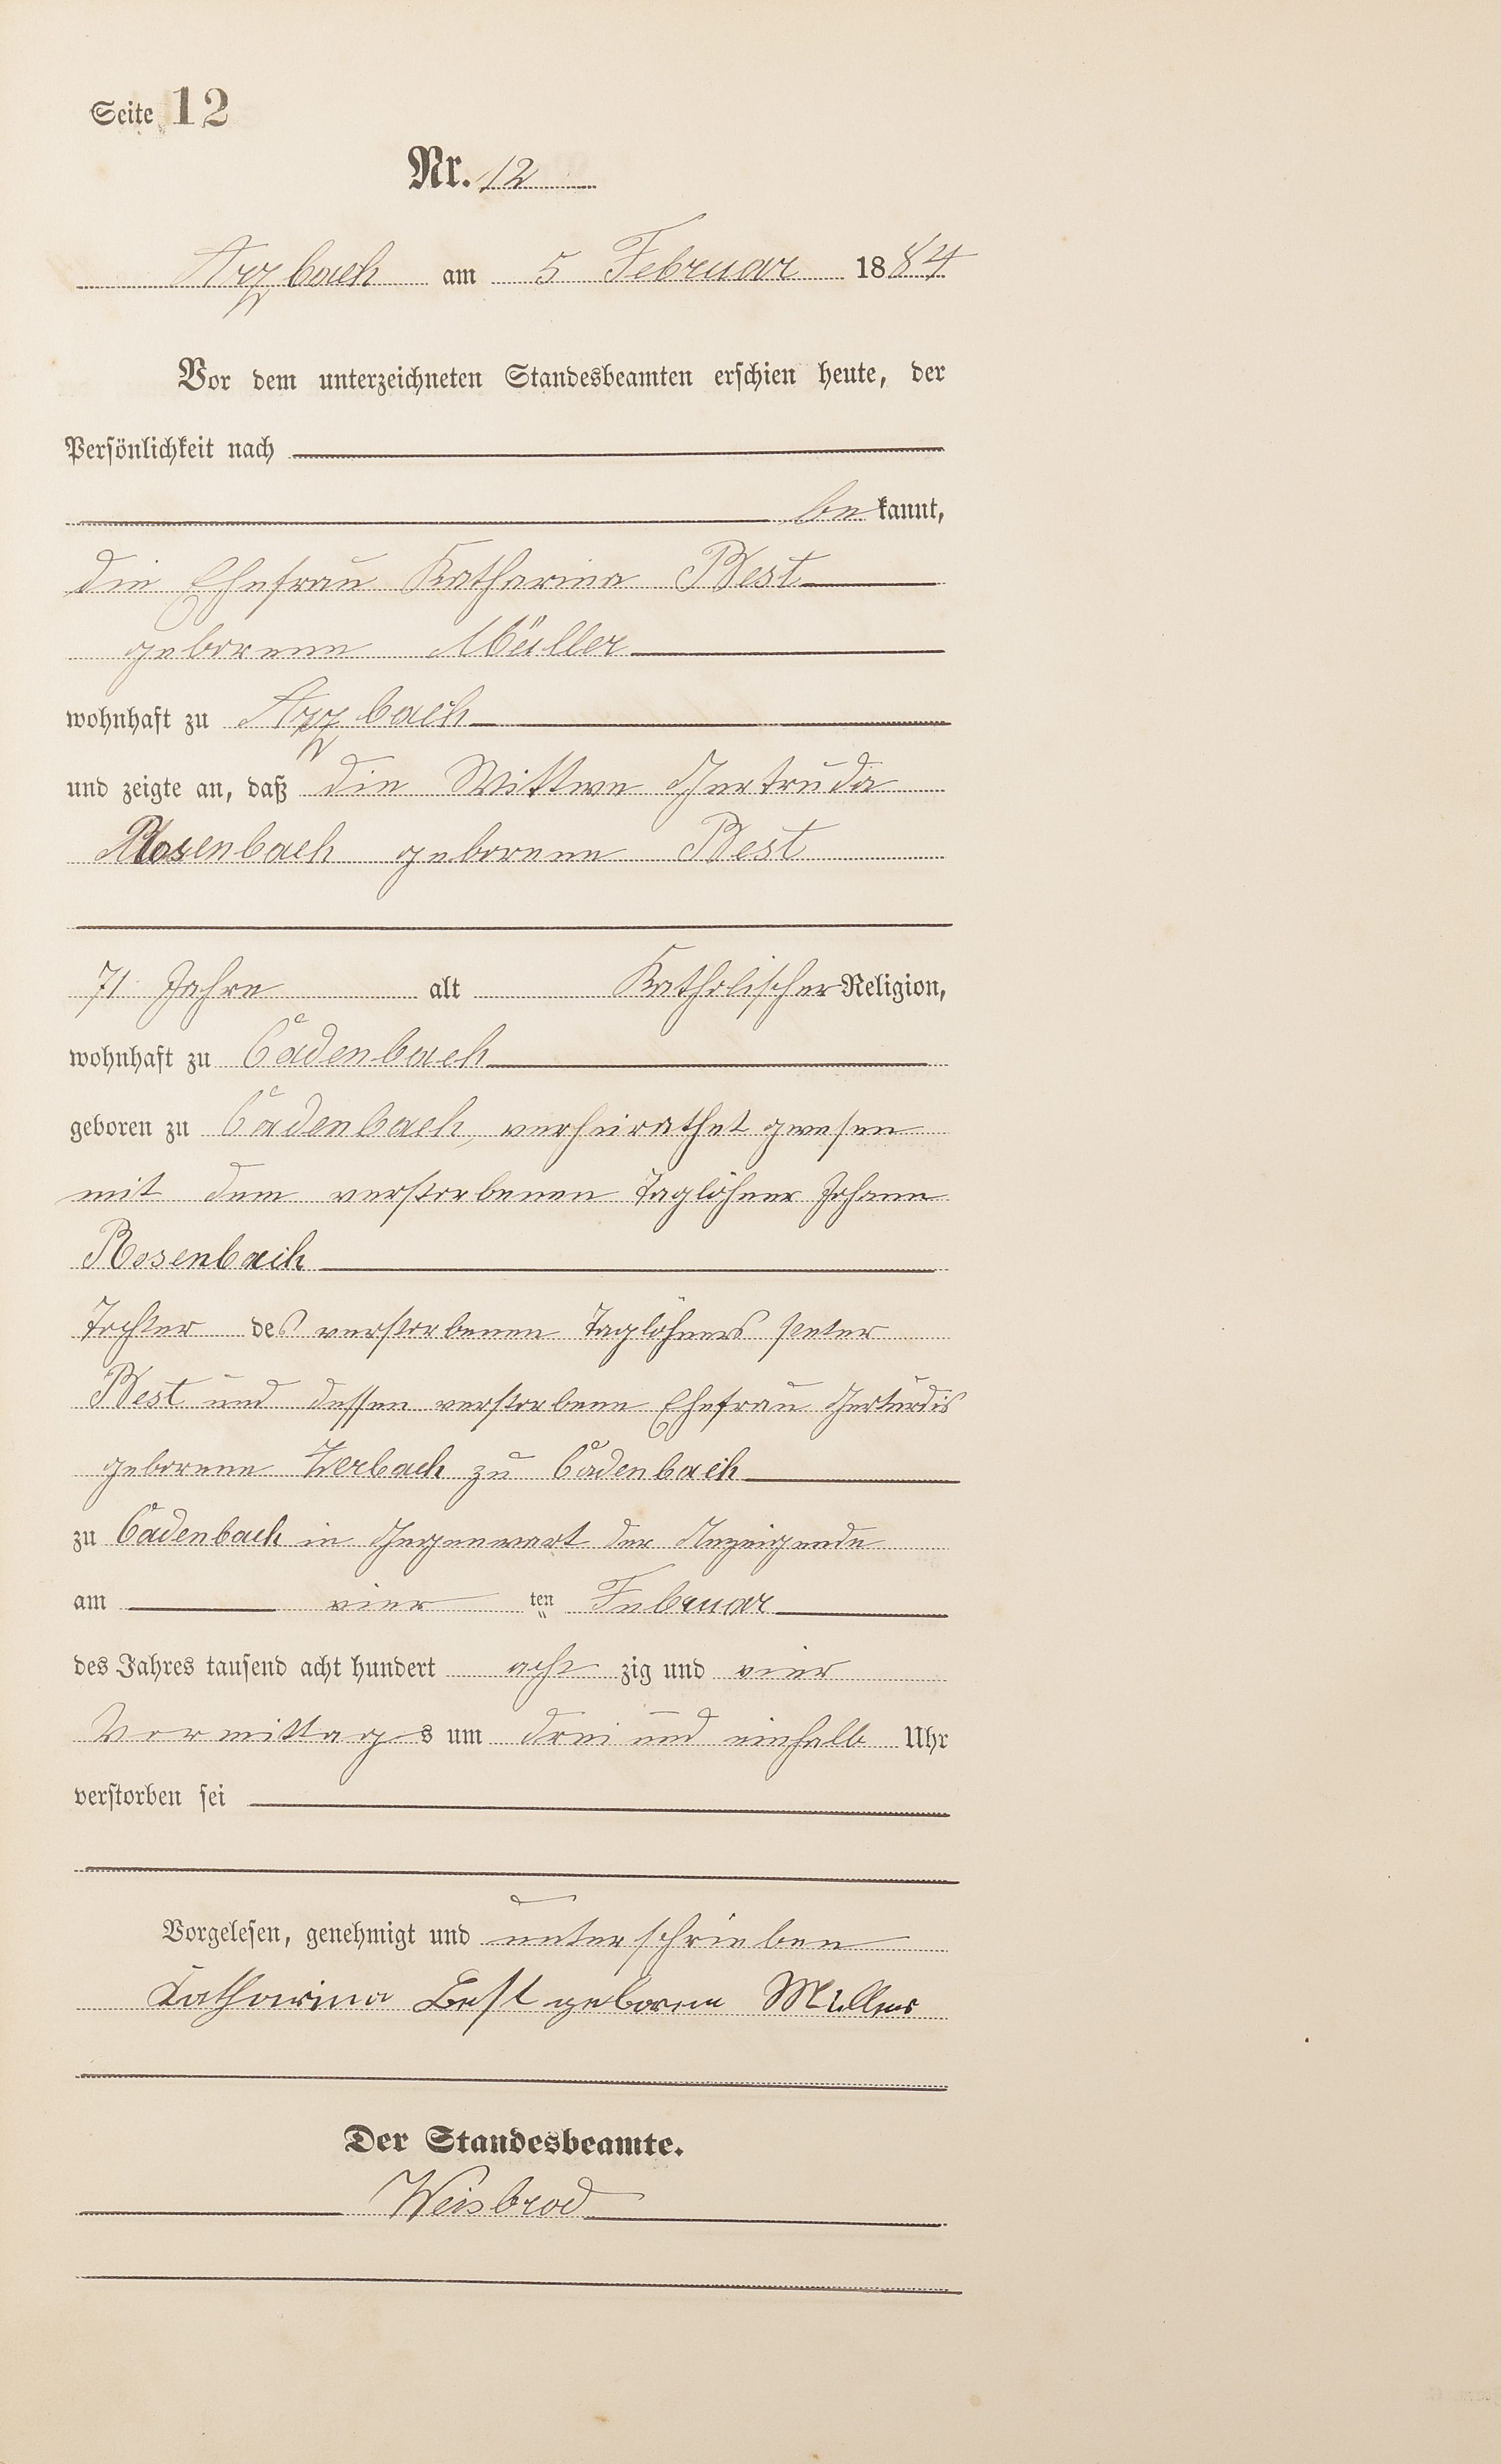 Seite 12
Nr. 12
Arzbach am 5 Februar 1884
Vor dem unterzeichneten Standesbeamten erschien heute, der
Persönlichkeit nach
bekannt,
die Ehefrau Katharina Best
geborene Müller
wohnhaft zu Arzbach
und zeigte an, daß die Wittwe Gertruda
Rosenbach geborene Best
71 Jahre alt Katholischer Religion,
wohnhaft zu Cadenbach
geboren zu Cadenbach, verheirathet gwesen
mit dem verstorbenen Taglöhner Johann
Rosenbach
Tochter des verstorbenen Taglöhners Peter
Best und dessen verstorbene Ehefrau Gerturdis
geborene Zerbach zu Cadenbach
zu Cadenbach in Gegenwart der Anzeigende
am vier ten Februar
des Jahres tausend acht hundert acht zig und vier
Vormittags um drei und einhalb Uhr
verstorben sei
Vorgelesen, genehmigt und unterschrieben
Katharina Best geborene Müller
Der Standesbeamte.
Weisbrod